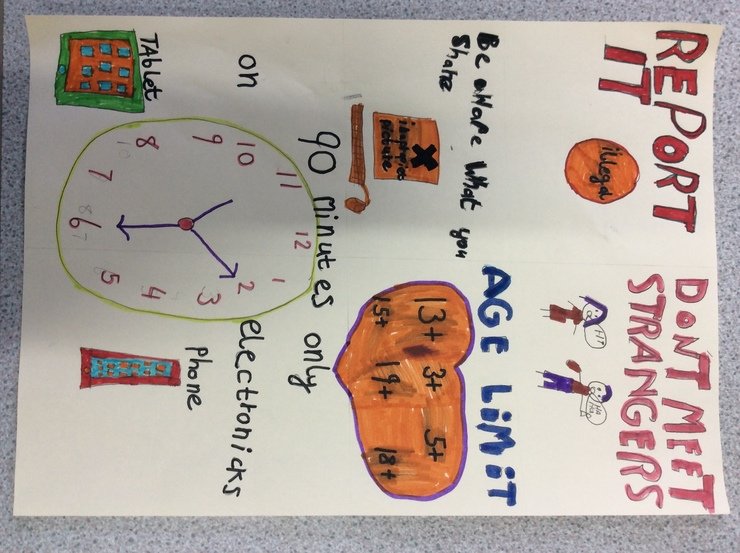 REPORT
IT
DONT MEET
STRANGERS
illegal
Be aware What you
AGE LiMiT
13+ 3+ 5+
15+ 19+ 18+
90 minutes only
on electronicks
11 12 1
10 2
9 3
8 4
7 6 5
TAblet
Phone